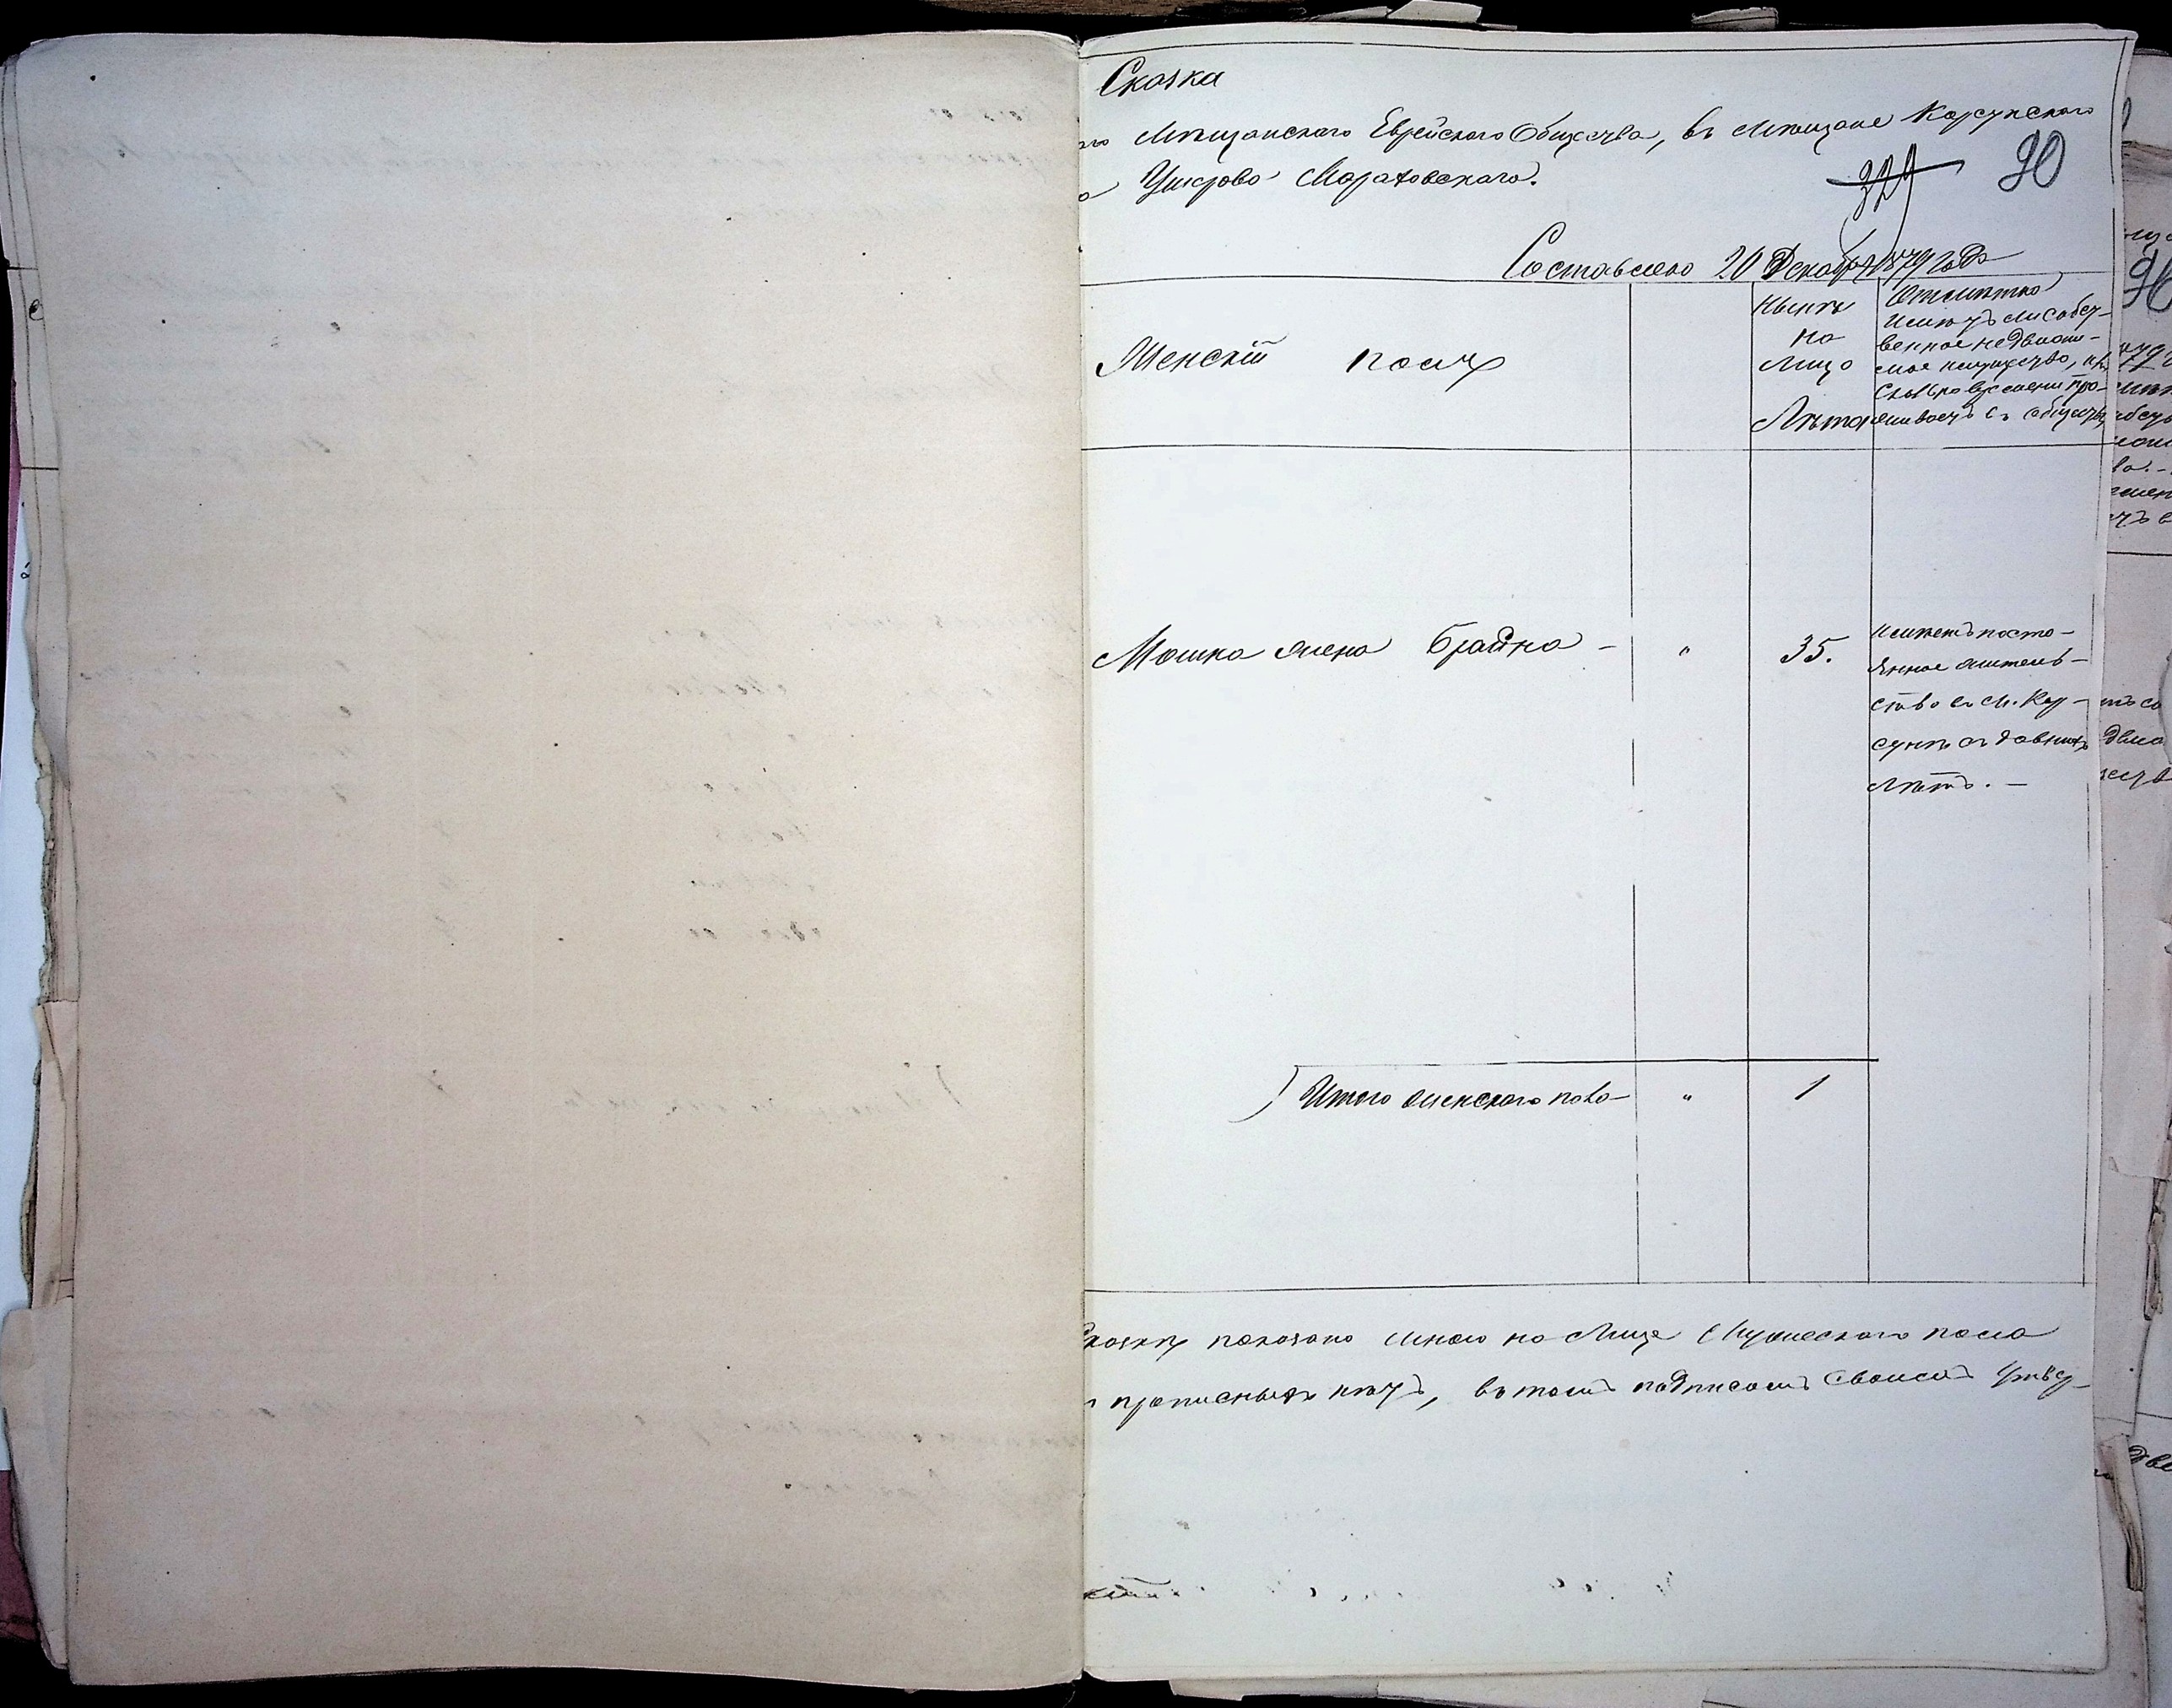 Сказка
го Мѣщанскаго Еврейскаго Общества, въ Мѣщане Корсунскаго
329 90
Составлено 20 Декабря 1874 года
Женскій полъ
Нынѣ на лицо
Лѣта
Отмѣтка
Имѣютъ ли собст-
венное недвижи-
мое имущество, и
сколько времени про-
живаетъ въ обществѣ
Мошка жена Брайна - " 35.
Имѣетъ посто-
янное житель-
ство въ м. Кор-
сунѣ съ давнихъ
лѣтъ. -
Итого женскаго пола - " 1
показано мною на лице Мужескаго пола
прописныхъ нѣтъ, въ томъ подписомъ своимъ